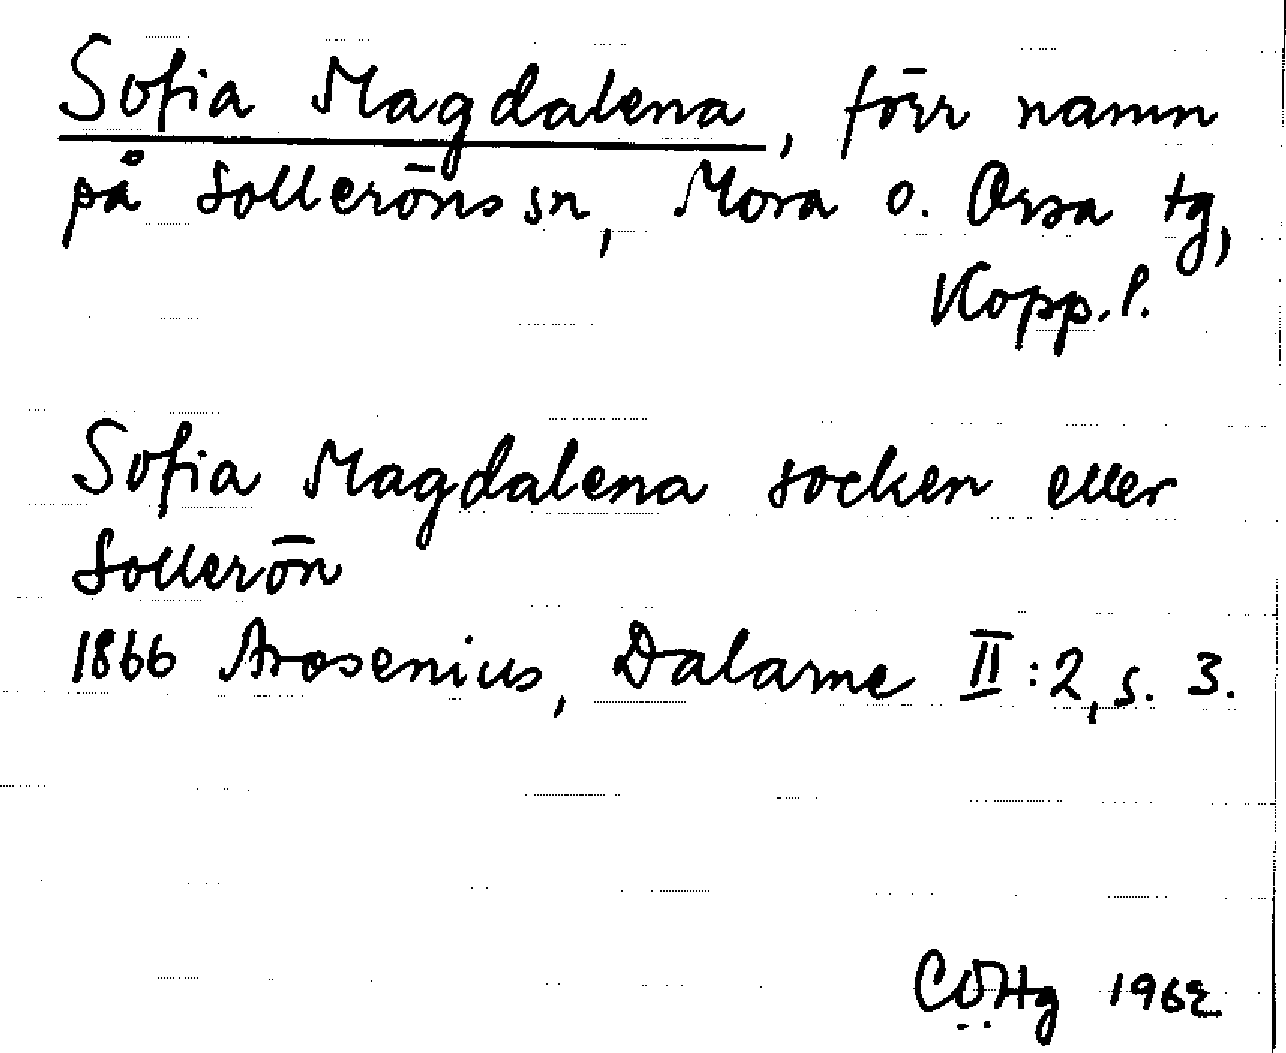 Sofia Magdalena, förr namn
på Solleröns sn, Mora o. Orsa tg,
Kopp. l.
Sofia Magdalena socken eller
Sollerön
1866 Arosenius, Dalarne II:2, s. 3.
CÖHg 1962